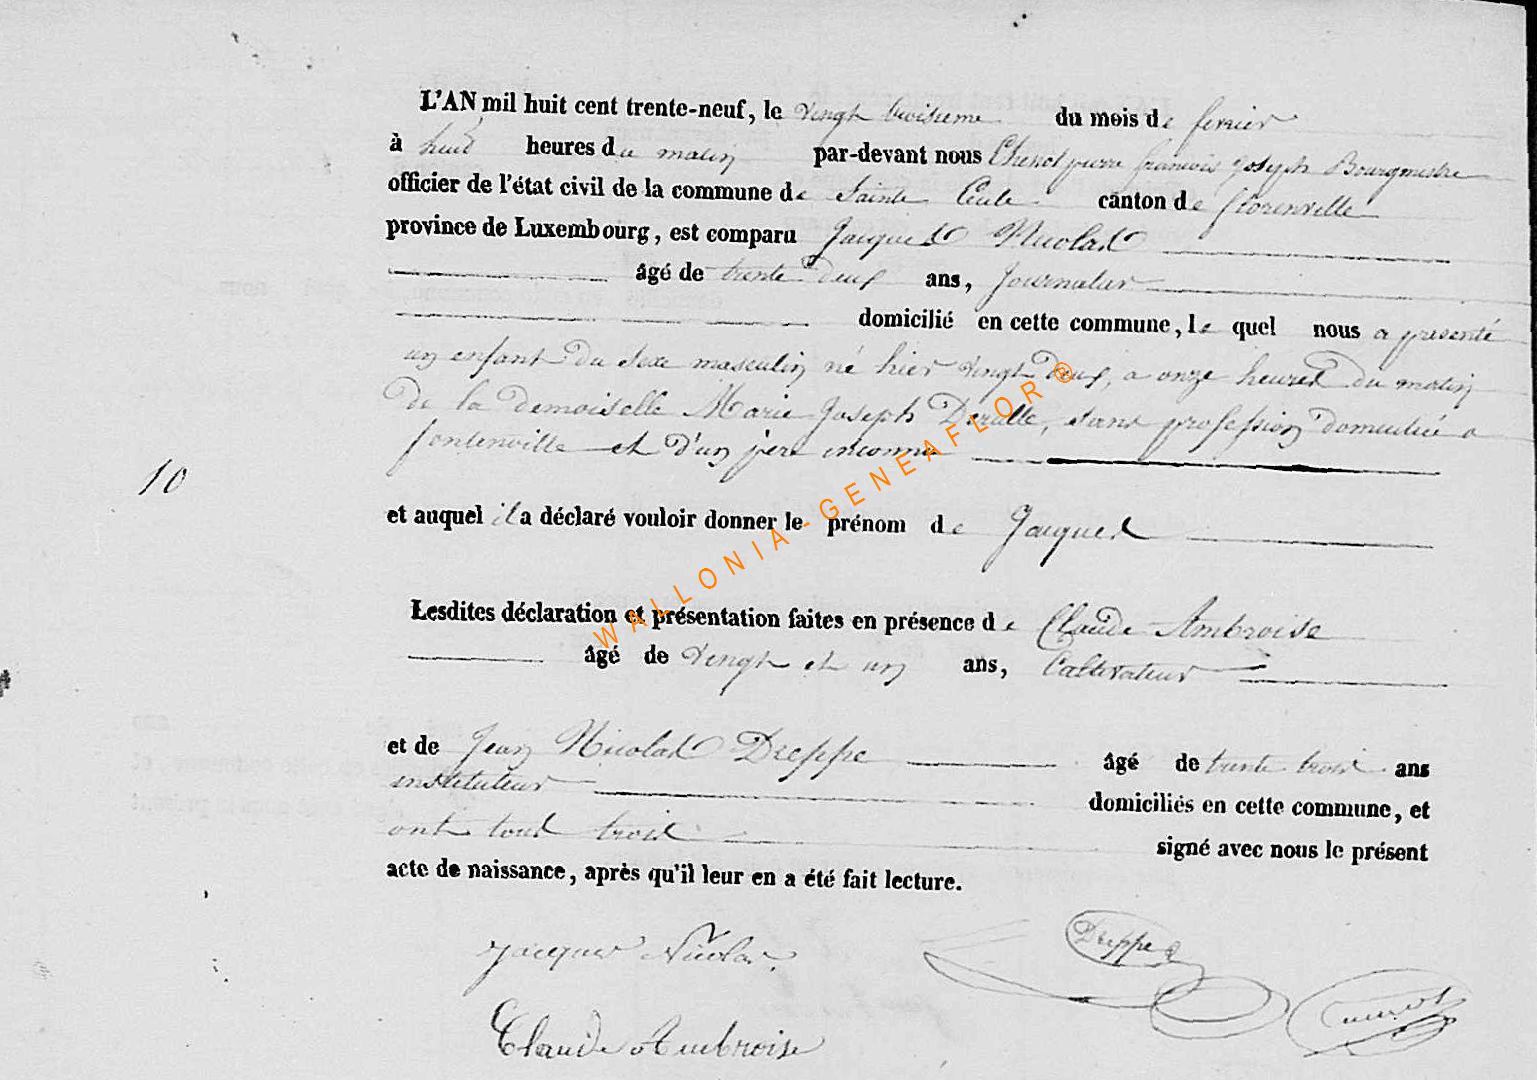 L'AN mil huit cent trente-neuf, le vingt troisieme du mois de fevrier
à huit heures du matin par-devant nous Chenot pierre francois Joseph Bourgmestre
officier de l'état civil de la commune de Sainte Cécile canton de florenville
province de Luxembourg, est comparu Jacques Nicolas
âgé de trente deux ans, Journalier
domicilié en cette commune, lequel nous a présenté
un enfant du sexe masculin né hier vingt deux, a onze heures du matin
de la demoiselle Marie Joseph, sans profession domiciliée a
fontenoille et d'un père inconnu
10
et auquel il a déclaré vouloir donner le prénom de Jacques
Lesdites déclaration et présentation faites en présence de Claude Ambroise
âgé de vingt et un ans, Cultivateur
et de Jean Nicolas Dreppe âgé de trente trois ans
instituteur domiciliés en cette commune, et
ont tous trois signé avec nous le présent
acte de naissance, après qu'il leur en a été fait lecture.
Jacques Nicolas.
Dreppe
Chenot
Claude Ambroise
WALLONIA-GENEAFLOR®